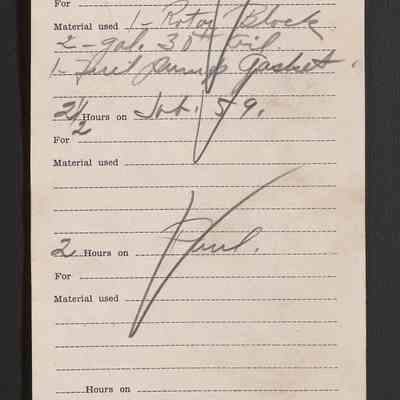 For
Material used 1 - Rotor Block
2 - gal. 30 Oil
1 - Fuel Pump Gasket.
2 1/2 Hours on Job. 59.
For
Material used
2 Hours on
For
Material used
Hours on